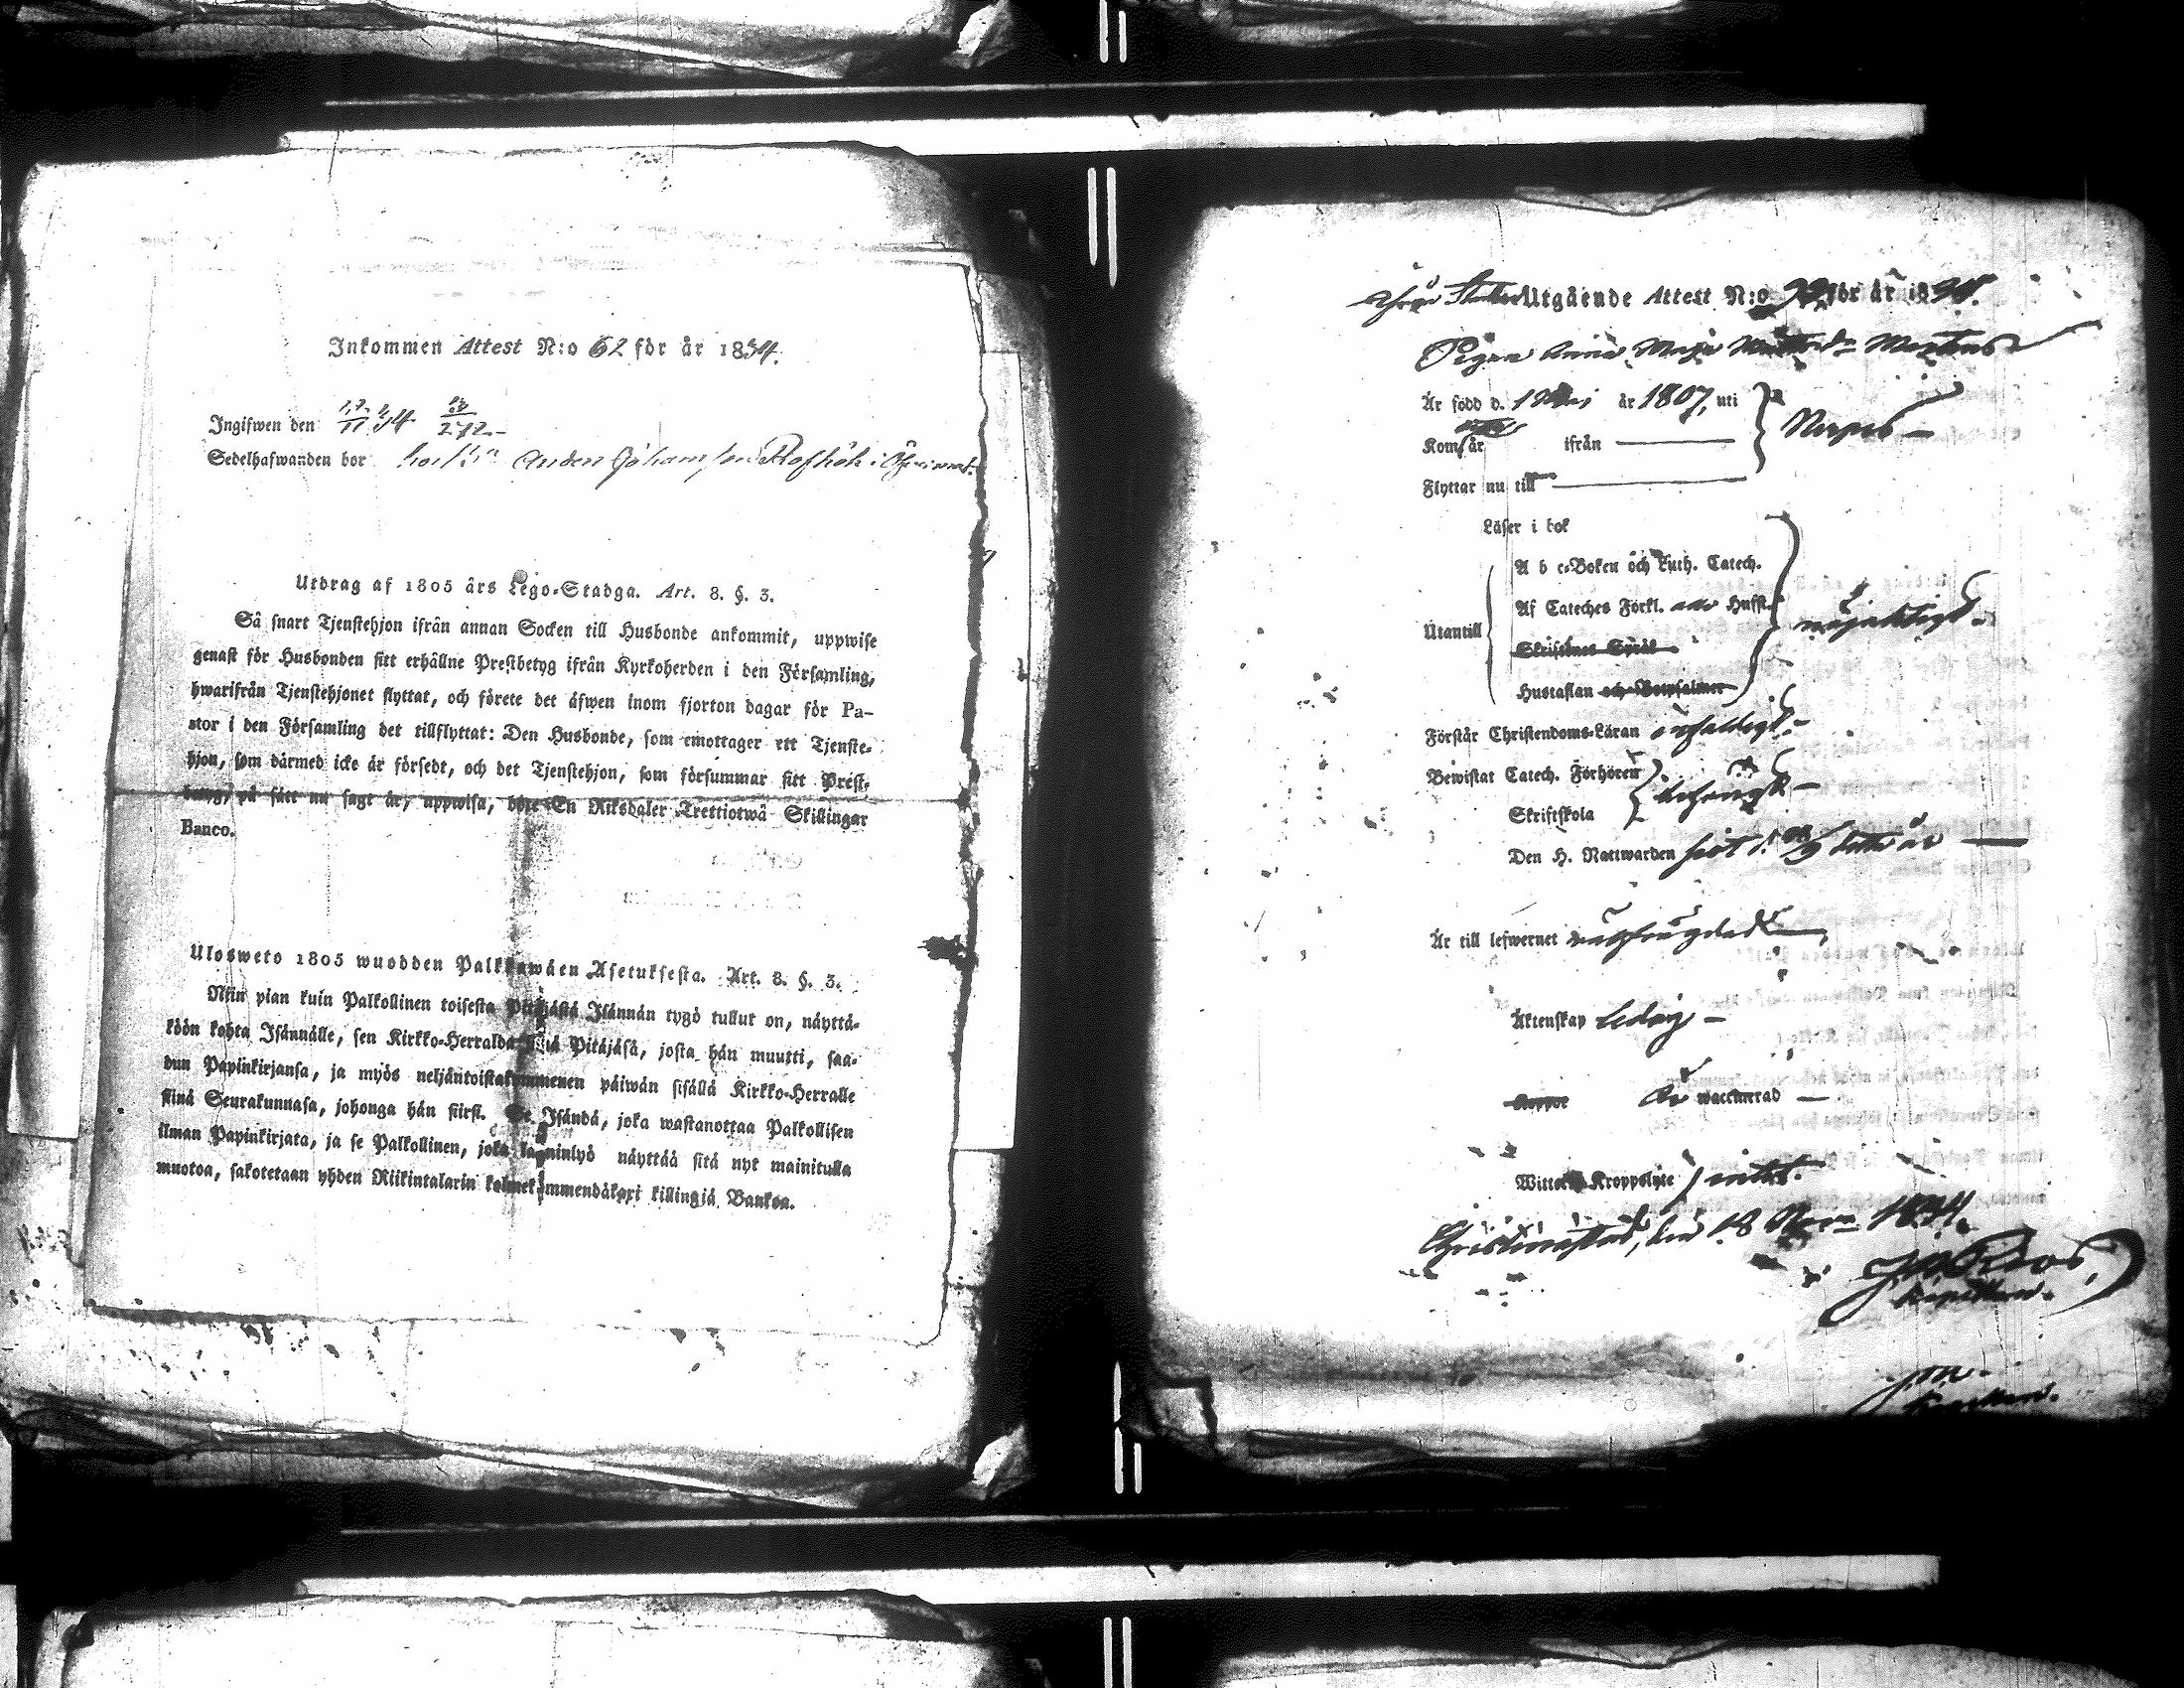 Inkommen Attest N:o 62 för år 1834.
Ingifwen den
Sedelhafwanden bor
Utdrag af 1805 års Lego-Stadga. Art. 8. §. 3.
Så snart Tjenstehjon ifrån annan Socken till Husbonde ankommit, uppwise
genast för Husbonden sitt erhållne Prestbetyg ifrån Kyrkoherden i den Församling,
hwarifrån Tjenstehjonet flyttat, och förete det äfwen inom fjorton dagar för Pa-
stor i den Församling det tillflyttat: Den Husbonde, som emottager ett Tjenste-
hjon, som därmed icke är försedt, och det Tjenstehjon, som försummar sitt Prest-
betyg, på sätt nu sagt är, uppwisa, böte En Riksdaler Trettiotwå Skillingar
Banco.
Ulosweto 1805 wuodden Palkkawäen Asetuksesta. Art. 8. §. 3.
Niin pian kuin Palkollinen toisesta Pitäjästä Isännän tygö tullut on, näyttä-
köön kohta Isännälle, sen Kirkko-Herralda siiä Pitäjäsä, josta hän muutti, saa-
dun Papinkirjansa, ja myös neljäntoistakymmenen päiwän sisällä Kirkko-Herralle
siinä Seurakunnasa, johonga hän siirsi. Se Isändä, joka wastanottaa Palkollisen
ilman Papinkirjata, ja se Palkollinen, joka laiminlyö näyttää sitä nyt mainitulla
muotoa, sakotetaan yhden Riikintalarin kolmekymmendäkaxi killingiä Bankoa.
Utgående Attest N:o för år 1834.
Pigan Anna Maja
Är född d. 1 Maj år 1807, uti
Närpes
Kom år ifrån
Flyttar nu till
Läser i bok
A b c-Boken och Luth. Catech.
Af Cateches Förkl. Husst.
Utantill
Skriftens Språk
Hustaflan och Botpsalmer
Förstår Christendoms-Läran enfaldigt.
Bewistat Catech. Förhören
Skriftskola
Den H. Nattwarden
Är till lefwernet
Äktenskap Ledig
Koppor är waccinerad
Wittert Kroppslyte intet.
Christinestad, den 18 Nov. 1834.
Kapellan.